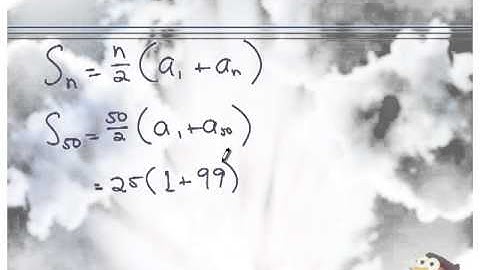 Sₙ = n/2 (a₁ + aₙ)
S₅₀ = 50/2 (a₁ + a₅₀)
= 25 (1 + 99)